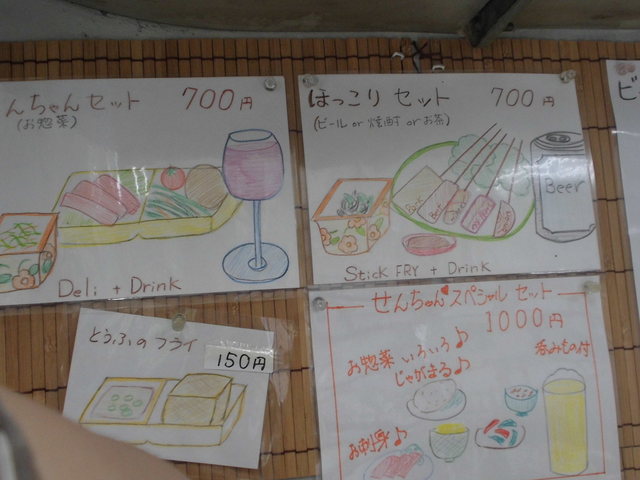 んちゃんセット 700円
(お惣菜)
Deli + Drink
ほっこり セット 700円
(ビール or 焼酎 or お茶)
Beer
Stick FRY + Drink
とうふの フライ
150円
せんちゃん♥スペシャル セット
1000円
お惣菜 いろいろ♪
呑みもの付
じゃがまる♪
お刺身♪
ビ